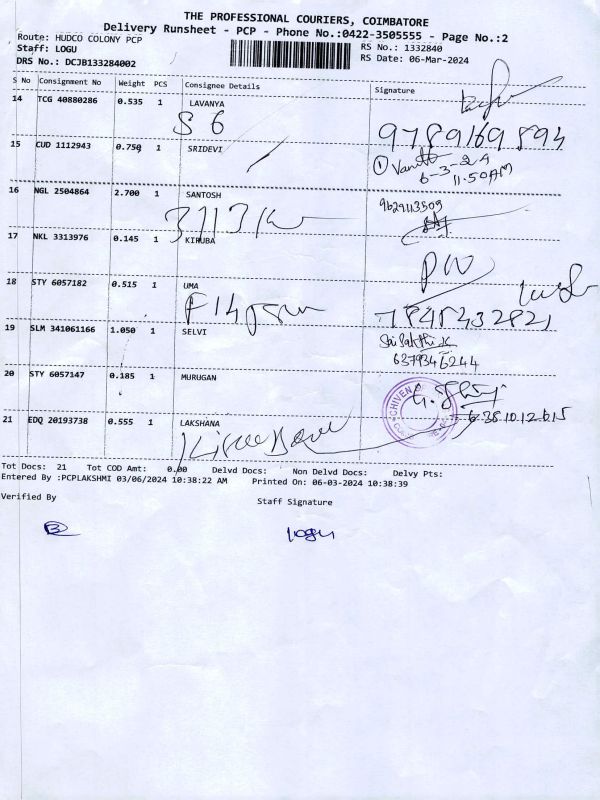 THE PROFESSIONAL COURIERS, COIMBATORE
Delivery Runsheet - PCP - Phone No.:0422-3505555 - Page No.:2
Route: HUDCO COLONY PCP
RS No.: 1332840
Staff: LOGU
RS Date: 06-Mar-2024
DRS No.: DCJB133284002
S No Consignment No Weight PCS Consignee Details Signature
14 TCG 40880286 0.535 1 LAVANYA
S 6
9789169894
15 CUD 1112943 0.750 1 SRIDEVI
6-3-24
11.50AM
16 NGL 2504864 2.700 1 SANTOSH
9629113509
17 NKL 3313976 0.145 1 KIRUBA
18 STY 6057182 0.515 1 UMA
F14
7845432821
19 SLM 341061166 1.050 1 SELVI
Sai Sakthi.K
6379346244
20 STY 6057147 0.185 1 MURUGAN
21 EDQ 20193738 0.555 1 LAKSHANA
Tot Docs: 21 Tot COD Amt: 0.00 Delvd Docs: Non Delvd Docs: Delvy Pts:
Entered By :PCPLAKSHMI 03/06/2024 10:38:22 AM Printed On: 06-03-2024 10:38:39
Verified By
Staff Signature
Logu